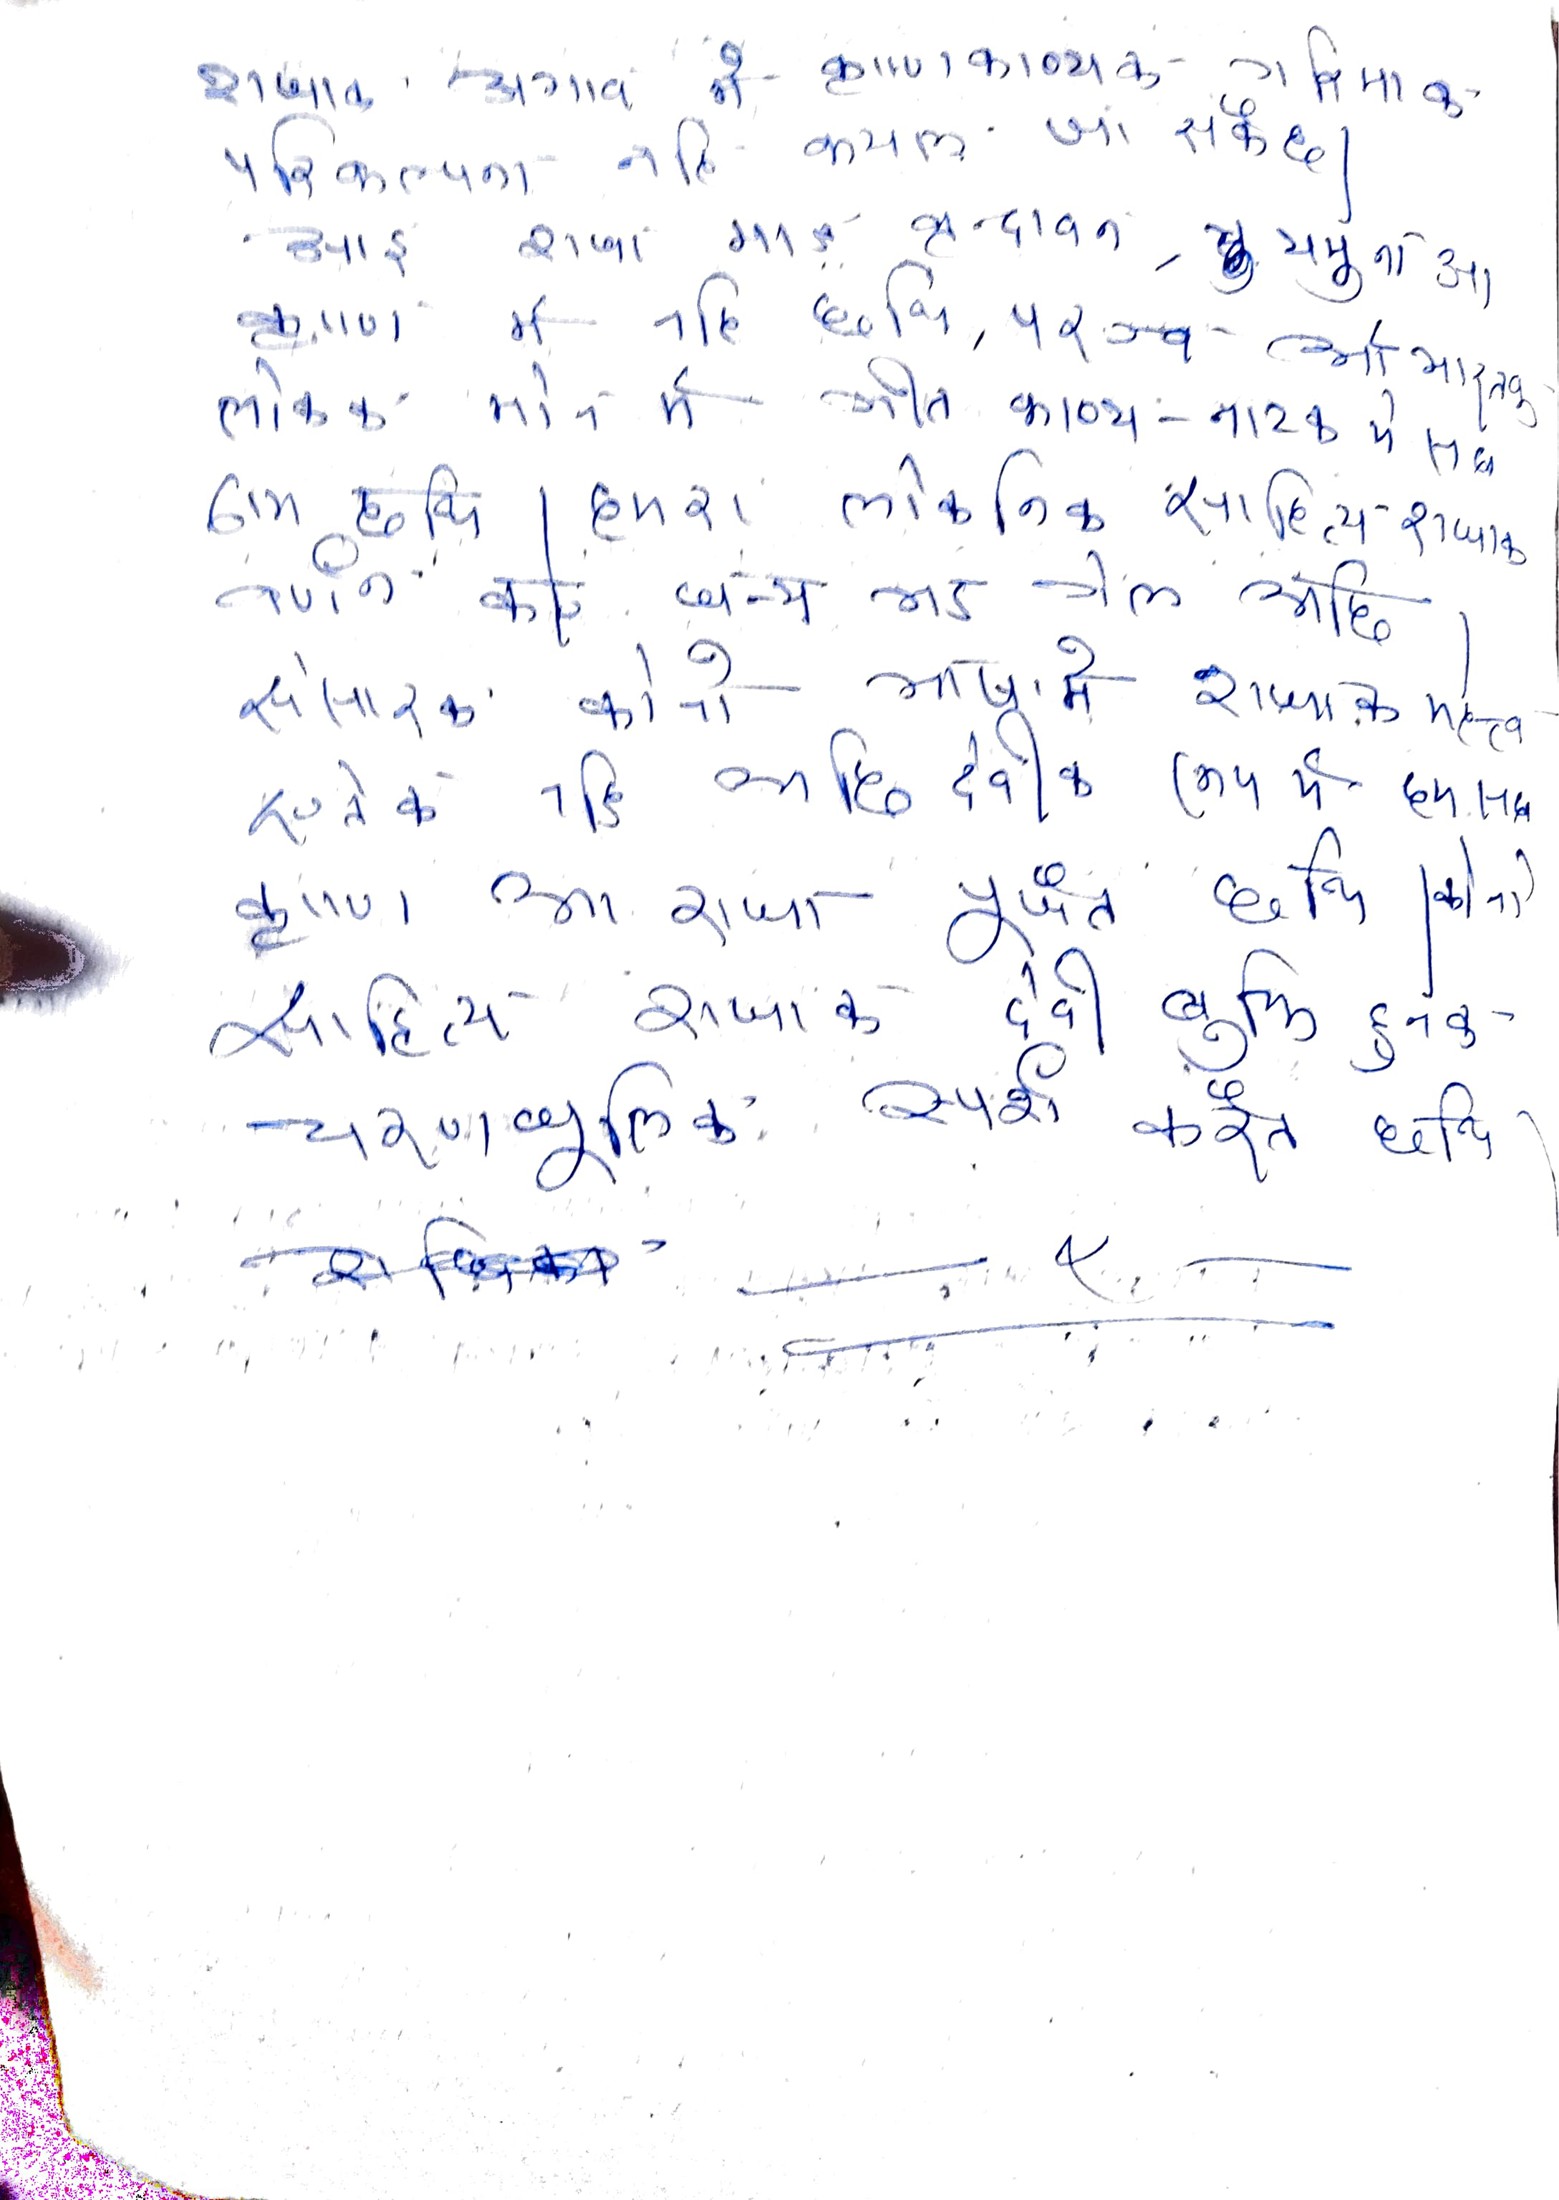 राधाक अभाव में कृष्णकाव्यक गरिमाक
परिकल्पना नहि कयल जा सकैछ।
आइ राधा मात्र वृन्दावन, यमुना आ
कृष्ण में नहि छथि, परञ्च ओ भारतक
लोकक मोन में गीत काव्य-नाटक में सब
ठाम छथि। हमरा लोकनिक साहित्य राधाक
वर्णन कए धन्य भऽ गेल अछि।
संसारक कोनो भाषा में राधाक महत्व
एतेक नहि अछि देवीक रूप में हम सब
कृष्ण आ राधा पुजैत छथि। कोनो
साहित्य राधाक देवी बुझि हुनक
चरणधूलिक स्पर्श करैत छथि